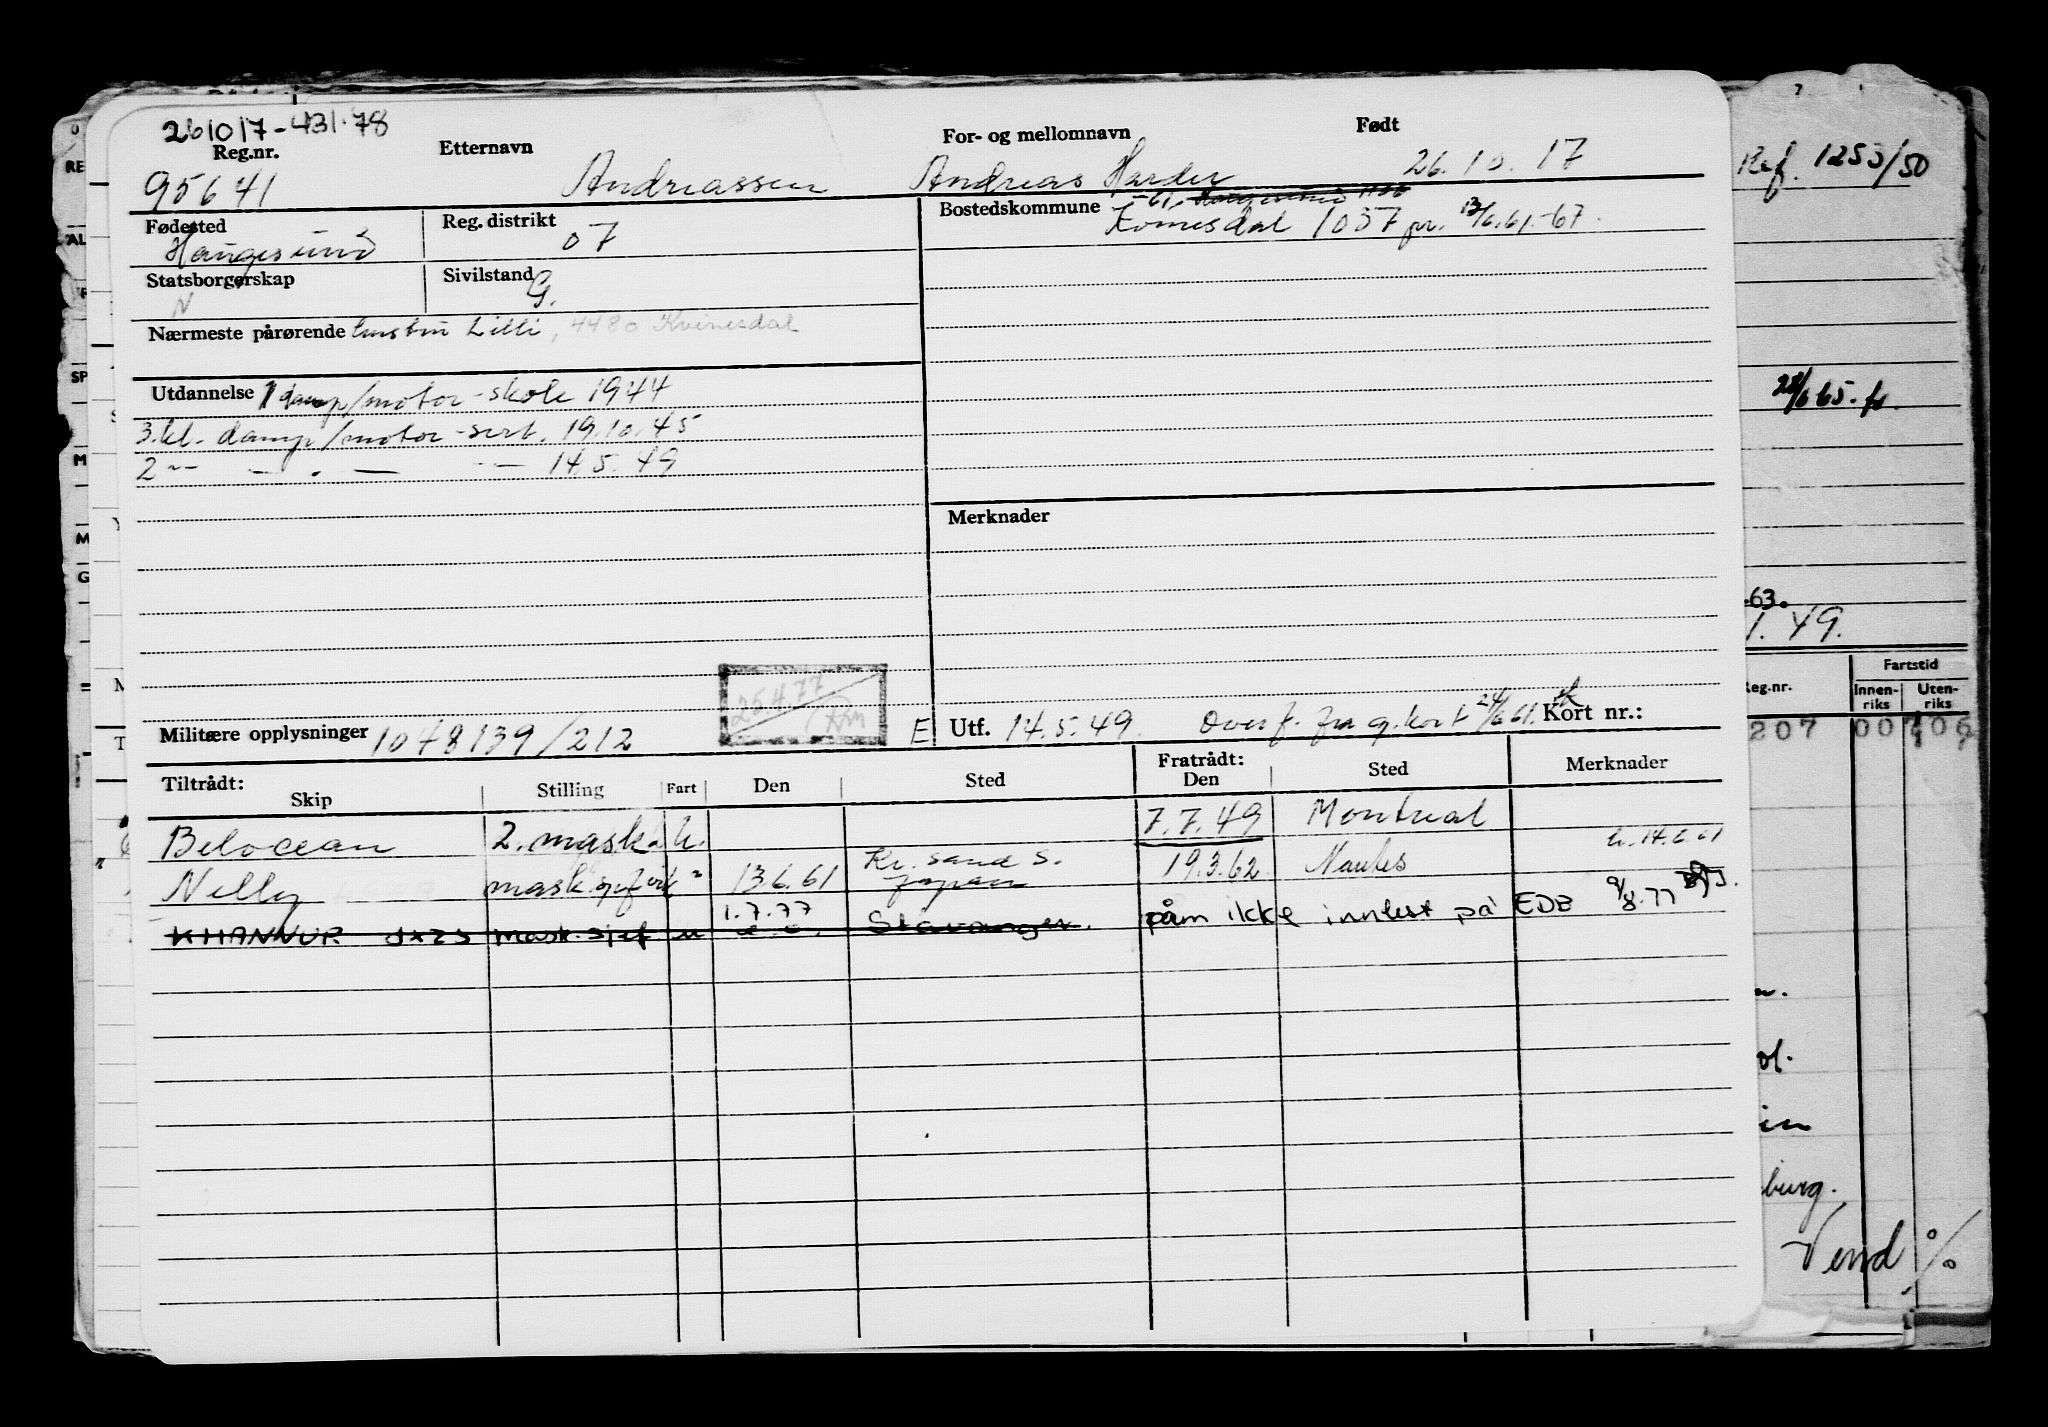 261017-431.78
Reg.nr. Etternavn For- og mellomnavn Født
95641 Andreassen Andreas Harder 26.10.17
Fødested Reg. distrikt Bostedskommune -61, Haugesund 1106
Haugesund 07 Kvinesdal 1037 fr. 13/6.61.-67.
Statsborgerskap Sivilstand
N G.
Nærmeste pårørende hustru Lilli, 4480 Kvinesdal
Utdannelse damp/motor-skole 1944
3.kl. damp/motor-sert. 19.10.45
2 -"- — . — -"- 14.5.49
Merknader
25.4.77
Militære opplysninger 1048139/212 E Utf. 14.5.49. Overf. fra g.kort 24/6 61. Kort nr.:
Tiltrådt: Fratrådt:
Skip Stilling Fart Den Sted Den Sted Merknader
Belocean 2. mask. u. 7.7.49 Montreal
Nelly mask.sjef " 13.6.61 Kr.sand S. 19.3.62 Nantes 14.6.61
Japan
KHANNUR JXZJ mask.sjef u 1.7.77 Stavanger. påm ikke innlest på EDB 9/8.77
Ref. 1253/50
28/6 65. fr.
.63.
1.49.
Fartstid
Reg.nr. Innen-riks Uten-riks
207 00
ol.
in
burg.
Vend %